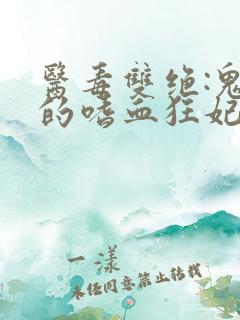 醫毒雙绝:鬼
的嗜血狂妃
一漾
未经同意禁止转载